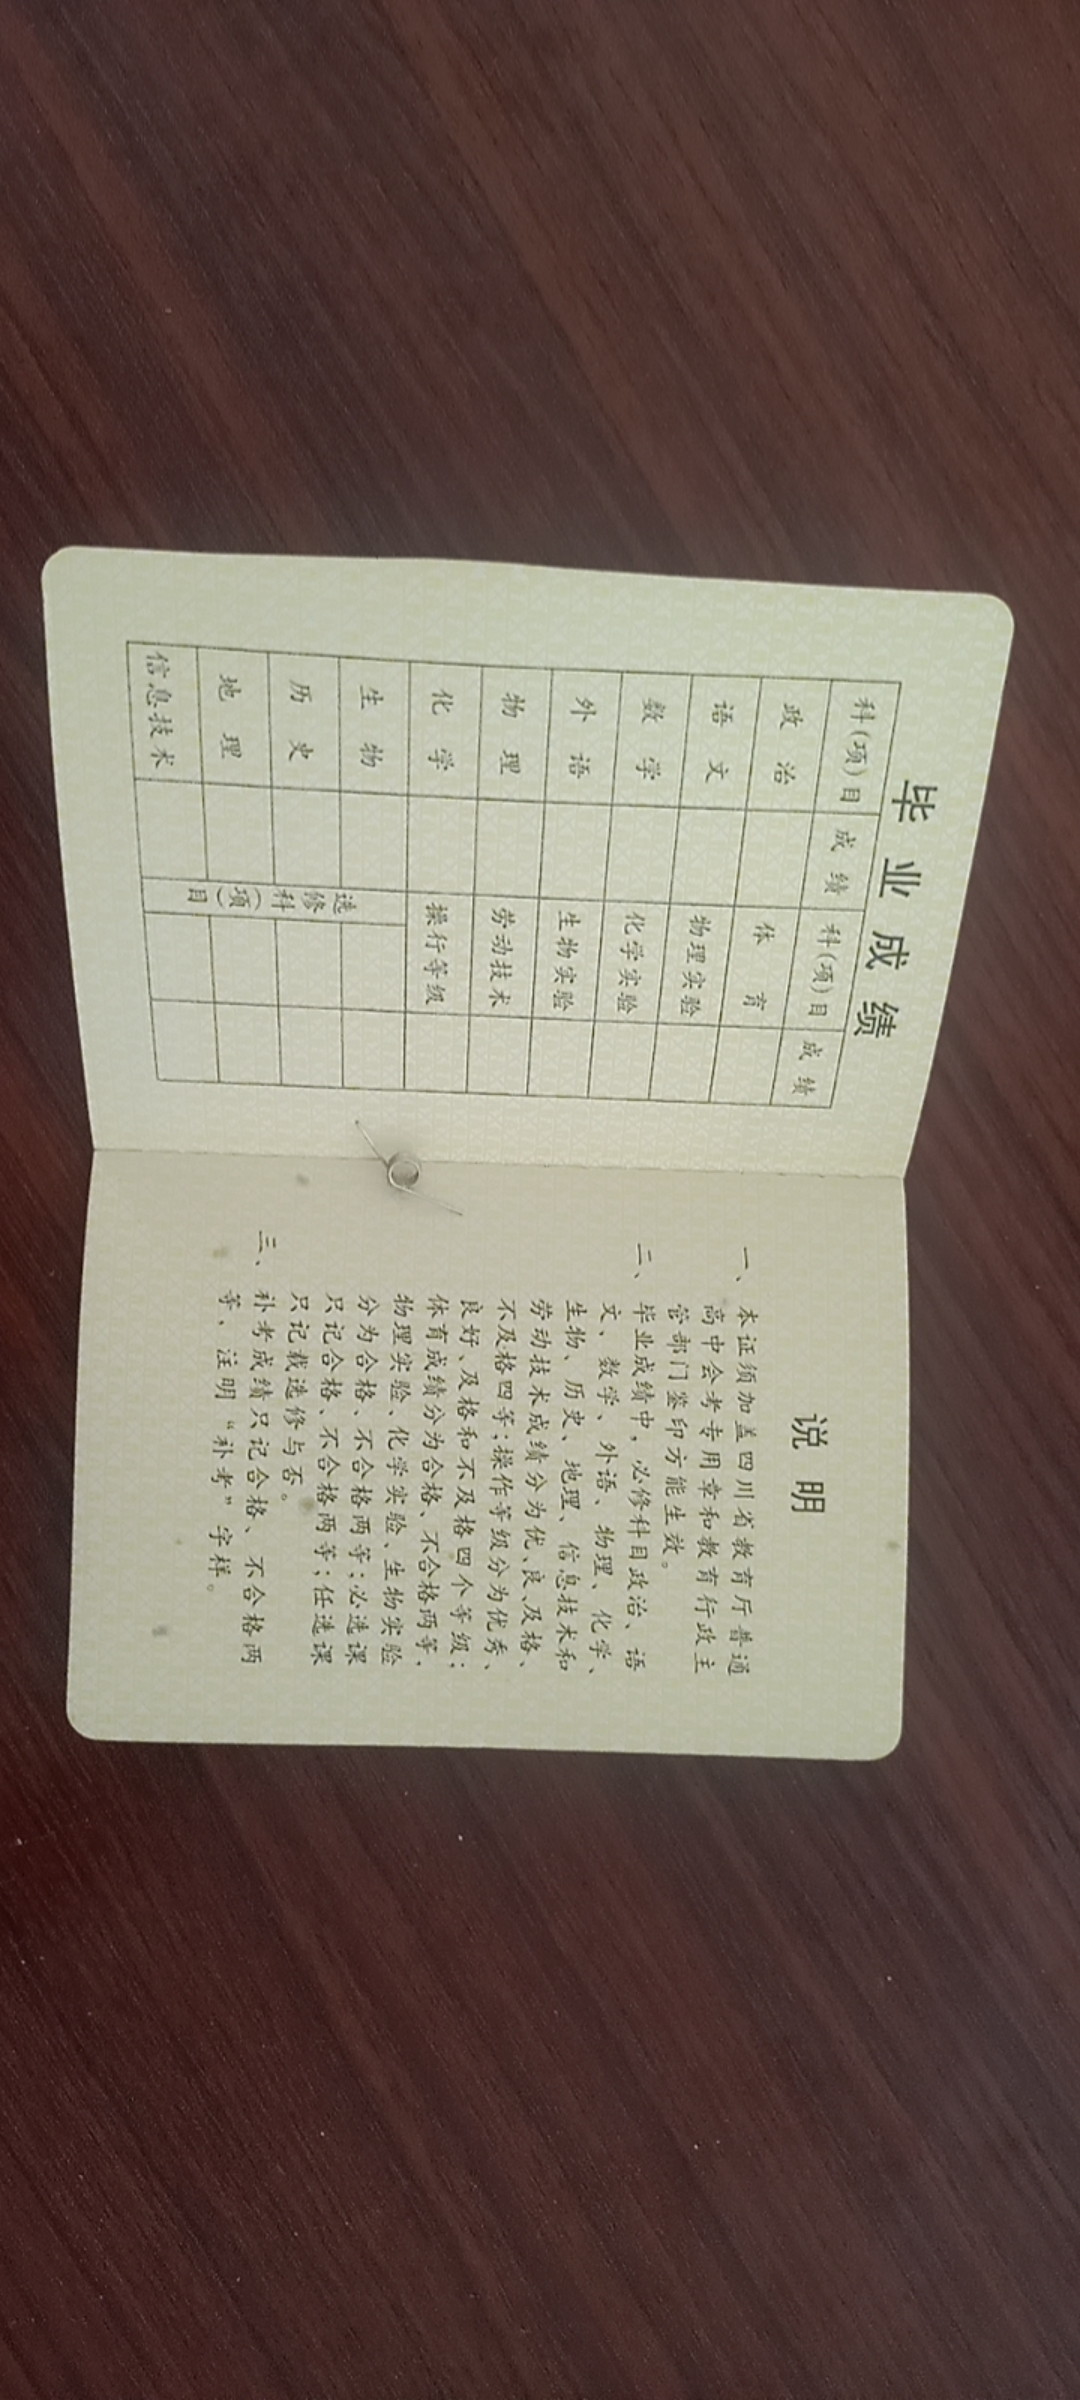 毕业成绩
科(项)目 成绩 科(项)目 成绩
政治 体育
语文 物理实验
数学 化学实验
外语 生物实验
物理 劳动技术
化学 操行等级
生物 选修科(项)目
历史
地理
信息技术
说明
一、本证须加盖四川省教育厅普通
高中会考专用章和教育行政主
管部门鉴印方能生效。
二、毕业成绩中,必修科目政治、语
文、数学、外语、物理、化学、
生物、历史、地理、信息技术和
劳动技术成绩分为优、良、及格、
不及格四等;操作等级分为优秀、
良好、及格和不及格四个等级;
体育成绩分为合格、不合格两等,
物理实验、化学实验、生物实验
分为合格、不合格两等;必选课
只记合格、不合格两等;任选课
只记载选修与否。
三、补考成绩只记合格、不合格两
等,注明“补考”字样。